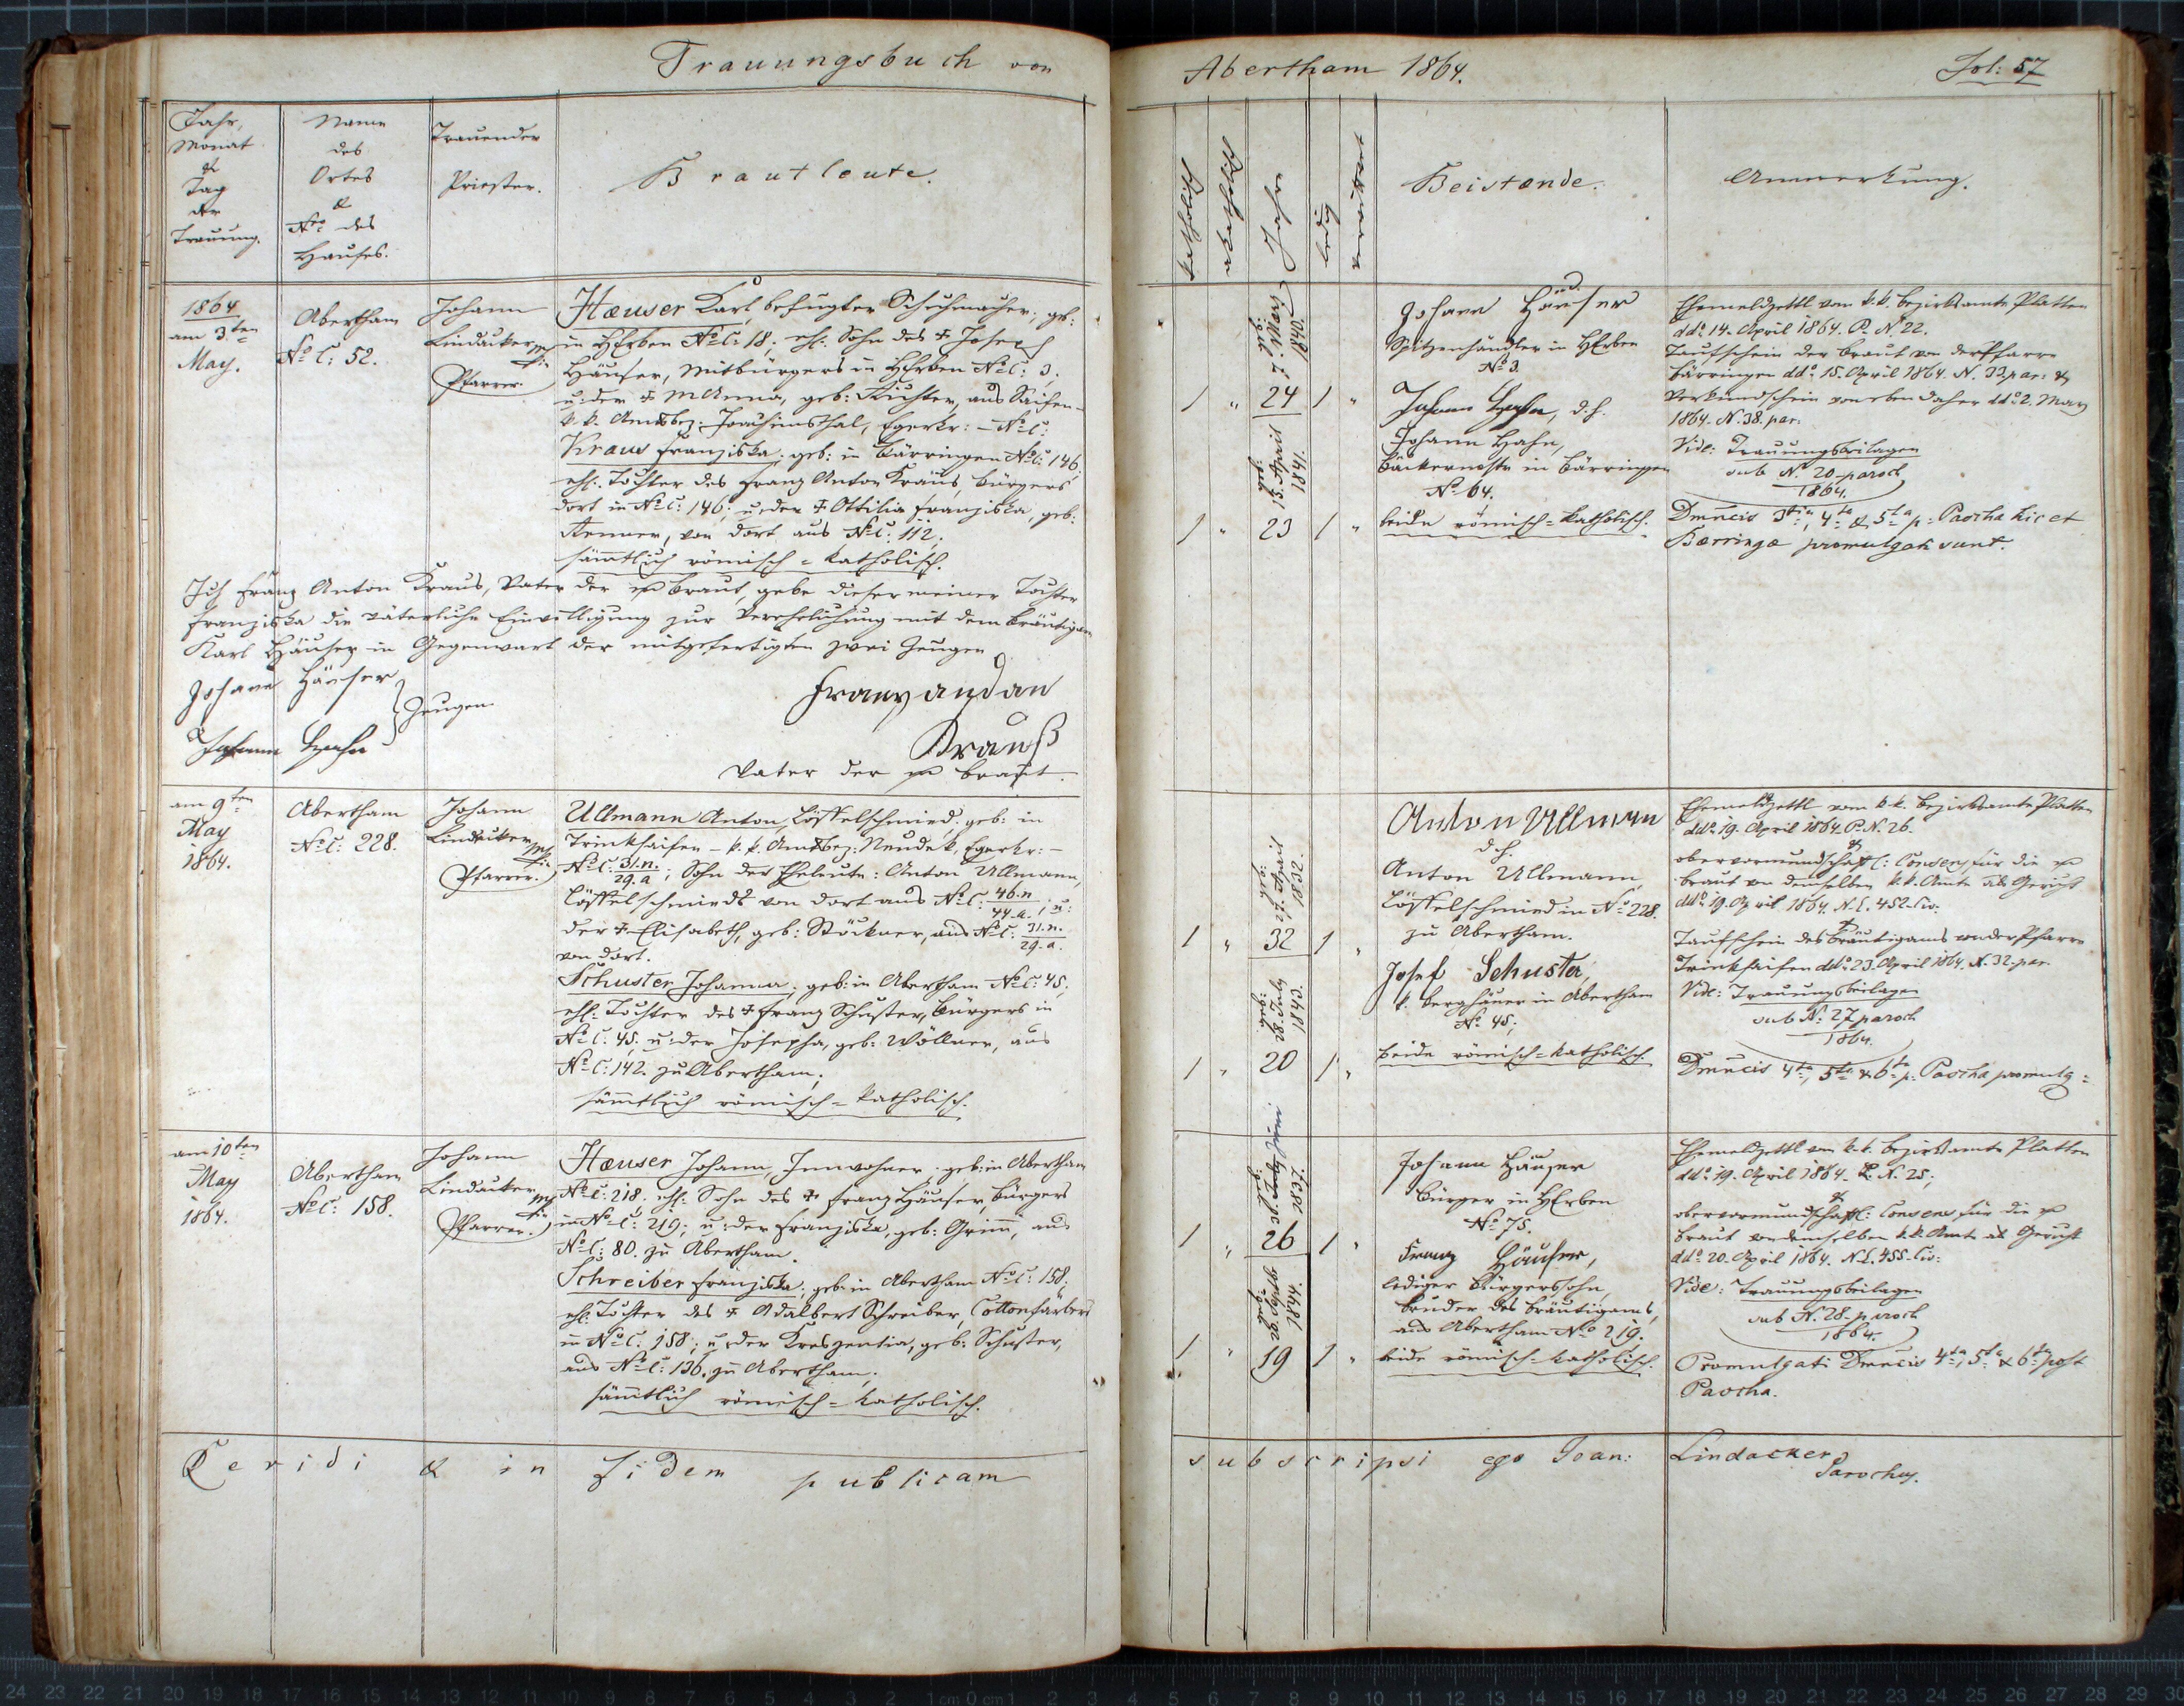 Trauungsbuch von
Abertham 1864.
Fol: 57
Jahr,
Monat
&
Tag
der
Trauung.
Name
des
Ortes
&
No des
Hauses.
Trauender
Priester.
Brautleute.
katholisch
akatholisch
Jahre
ledig
verwittwet
Beistände.
Anmerkung.
1864
am 3ten
May.
Abertham
No C: 52.
Johann
Lindauker
Pfarrer.
Hæuser Karl, befugter Schuhmacher, geb:
in HErben No C: 18; ehl. Sohn des † Joseph
Häuser, Mitbürgers in HErben No C: 3,
u: der † MAnna, geb: Richter, aus Saifen-
k. k. Amtsbez: Joachimsthal, Egerkr: - No C:
Kraus Franziska, geb: in Bärringen No C: 146,
ehl. Tochter des Franz Anton Kraus, Bürgers
dort in No C: 146; u: der † Ottilia Franziska, geb:
Renner, von dort aus No C: 112;
sämtlich römisch=katholisch.
Ich Franz Anton Kraus, Vater der Braut, gebe dieser meiner Tochter
Franziska die väterliche Einwilligung zur Verehelichung mit dem Bräutigam
Karl Häuser in Gegenwart der mitgefertigten zwei Zeugen
Johann Häuser
Johann Hahn
Zeugen
Franz andan
Krauß
Vater der Braut.
geb. 7. März
1840.
1 " 24 1 "
geb. 15. April
1841.
1 " 23 1 "
Johann Häuser
Spitzenhändler in HErben
No 3.
Johann Hahn, d. h.
Johann Hahn,
Bäckermeister in Bärringen
No 64.
beide römisch=katholisch.
Ehemeldzettl vom k. k. Bezirksamte Platten
ddo 14. April 1864. P. N 22.
Taufschein der Braut von der Pfarre
Bärringen ddo 15. April 1864. N. 33 par: &
Verkündschein von eben daher ddo 2. May
1864. N. 38. par:
Vide: Trauungsbeilagen
sub N. 20 paroch
1864.
Dmneis 3tia, 4ta & 5ta p: Pascha hic et
Bærringæ promulgati sunt.
am 9ten
May
1864.
Abertham
No C: 228.
Johann
Lindauker
Pfarrer.
Ullmann Anton, Löffelschmied, geb: in
Trinksaifen - k. k. Amtsbez: Neudek, Egerkr: -
No C: 31.n. / 29.a; Sohn der Eheleute: Anton Ullmann,
Löffelschmieds von dort aus No C: 46.n / 44.a; u:
der † Elisabeth, geb: Stöckner, aus No C: 31.n. / 29.a.
von dort.
Schuster Johanna, geb: in Abertham No C: 45;
ehl. Tochter des † Franz Schuster, Bürgers in
No C: 45; u: der Josepha, geb: Wöllner, aus
No C: 142. zu Abertham;
sämtlich römisch=katholisch.
geb. 27. April
1832.
1 " 32 1 "
geb. 28. July
1843.
1 " 20 1 "
Anton Ullmann
d. h.
Anton Ullmann
Löffelschmied in No 228.
zu Abertham.
Josef Schuster,
k. Berghäuer in Abertham
No 45;
beide römisch=katholisch.
Ehemeldzettl vom k. k. Bezirksamte Platten
ddo 19. April 1864. P. N. 26.
&
obervormundschaftl: Consens für die
Braut von demselben k. k. Amte als Gericht
ddo 19. April 1864. N. E. 452. Civ:
&
Taufschein des Bräutigams von der Pfarre
Trinksaifen ddo 23. April 1864. N. 32. par.
Vide: Trauungsbeilagen
sub N. 27 paroch
1864.
Dmneis 4ta, 5ta & 6ta p: Pascha promulg:
am 10ten
May
1864.
Abertham
No C: 158.
Johann
Lindauker
Pfarrer.
Hæuser Johann, Innwohner, geb: in Abertham
No C: 218; ehl. Sohn des † Franz Häuser, Bürgers
in No C: 219; u: der Franziska, geb: Grimm, aus
No C: 80. zu Abertham.
Schreiber Franziska, geb: in Abertham No C: 158;
ehl: Tochter des † Adalbert Schreiber, Cottonfärbers
in No C: 158; u: der Kreszentia, geb: Schuster,
aus No C: 136. zu Abertham;
sämtlich römisch=katholisch.
geb. 31. July Juni
1837.
1 " 26 1 "
1844.
1 " 19 1 "
Johann Häuser
Bürger in HErben
No 75.
Franz Häuser,
lediger Bürgerssohn,
Bruder des Bräutigams,
aus Abertham No 219.
beide römisch=katholisch.
Ehemeldzettl vom k. k. Bezirksamte Platten
ddo 19. April 1864. P. N. 25;
&
obervormundschaftl: Consens für die
Braut von demselben k. k. Amte als Gericht
ddo 20. April 1864. N. E. 455. Civ:
Vide: Trauungsbeilagen
sub N. 28. paroch
1864.
Promulgati Dmneis 4ta, 5ta & 6ta post
Pascha.
Revidi & in fidem publicam
subscripsi ego Joan: Lindacker,
Parochus.
24 23 22 21 20 19 18 17 16 15 14 13 12 11 10 9 8 7 6 5 4 3 2 1 cm 0 cm 1 2 3 4 5 6 7 8 9 10 11 12 13 14 15 16 17 18 19 20 21 22 23 24 25 26 27 28 29 30